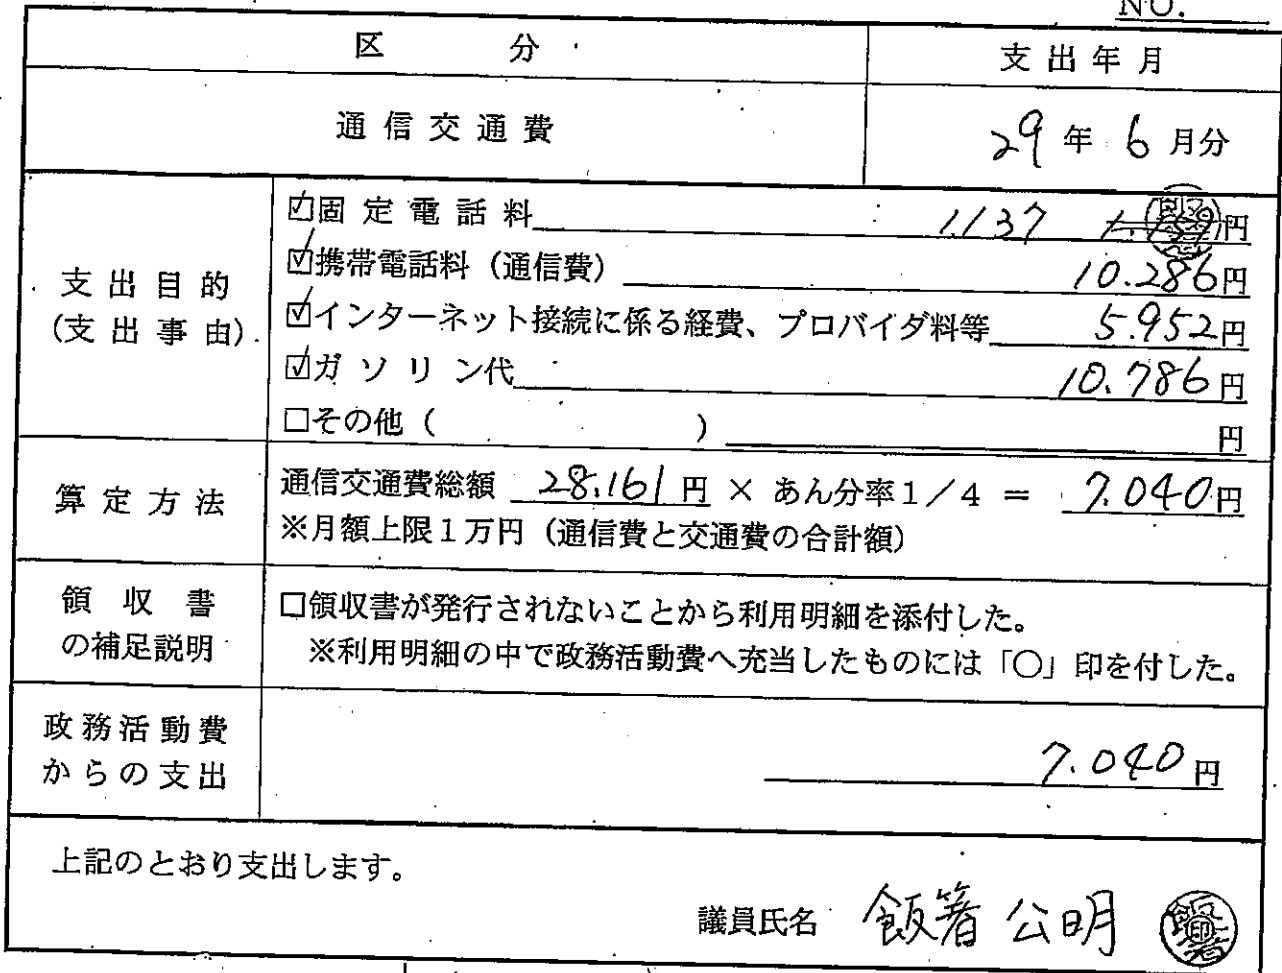 NO.
区 分
支出年月
通信交通費
29年 6月分
支出目的
(支出事由)
☑固定電話料 1.137 円
☑携帯電話料(通信費) 10.286円
☑インターネット接続に係る経費、プロバイダ料等 5.952円
☑ガソリン代 10.786円
□その他( ) 円
算定方法
通信交通費総額 28.161円 × あん分率1/4 = 7.040円
※月額上限1万円(通信費と交通費の合計額)
領収書
の補足説明
□領収書が発行されないことから利用明細を添付した。
※利用明細の中で政務活動費へ充当したものには「○」印を付した。
政務活動費
からの支出
7.040円
上記のとおり支出します。
議員氏名 飯箸 公明